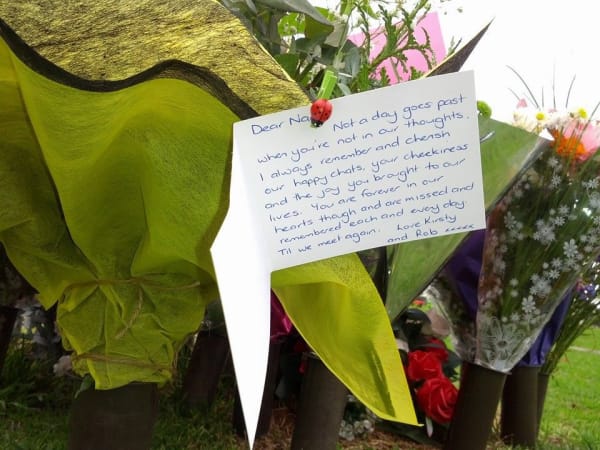 Dear Na Not a day goes past
when you're not in our thoughts.
I always remember and cherish
our happy chats, your cheekiness
and the joy you brought to our
lives. You are forever in our
hearts though and are missed and
remembered each and every day.
Til we meet again. Love Kirsty
and Rob xxxxx